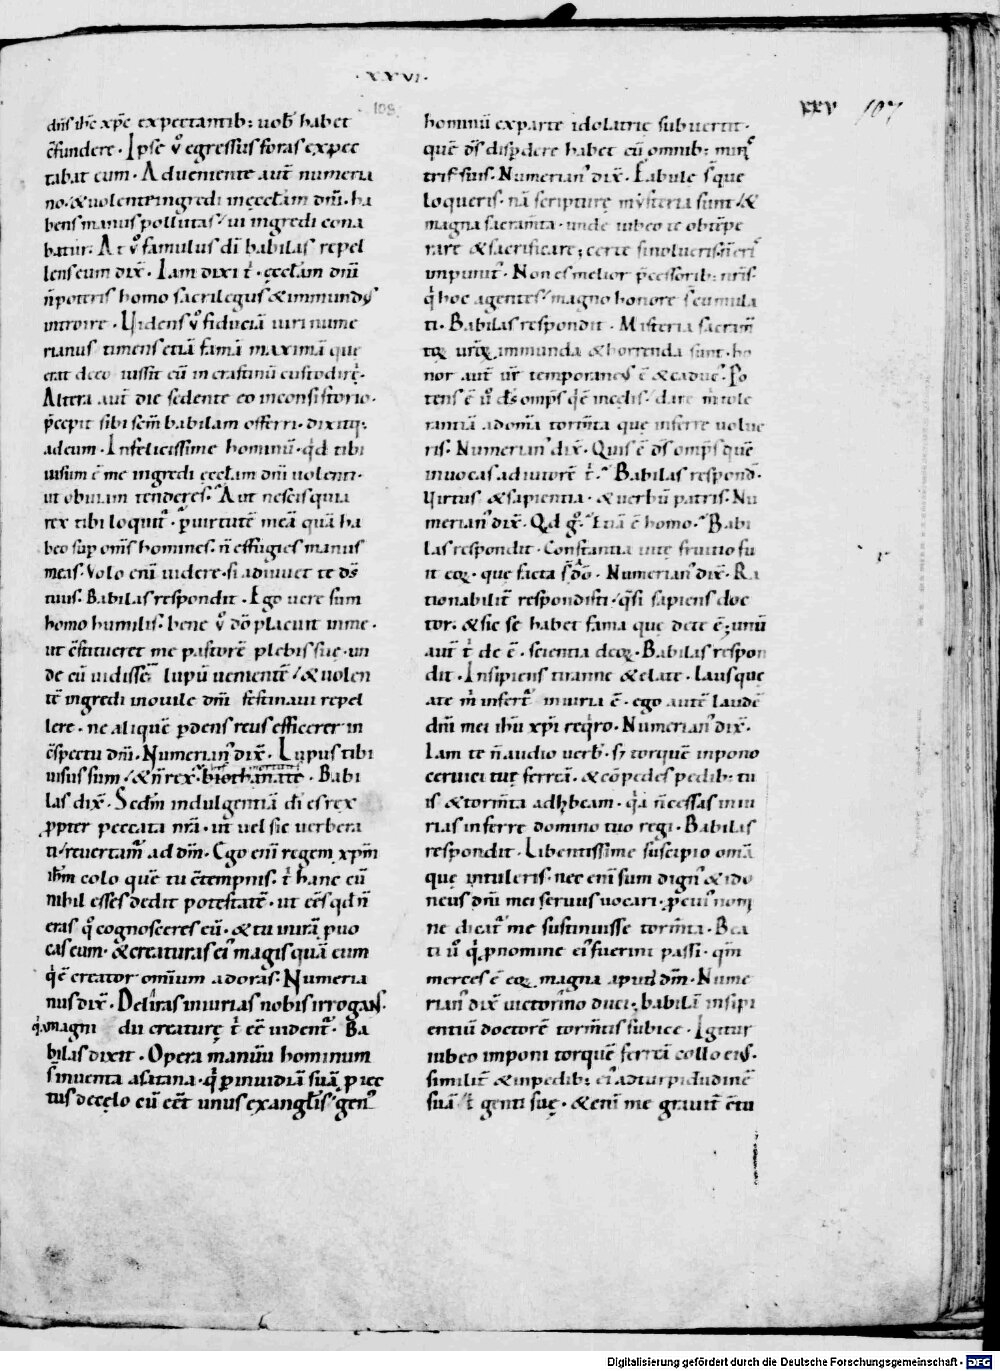 · XXVI ·
108
XXV 107
dn̄s ih̄e xp̄e expectantib; uob̄ habet
c̄fundere · Ipse ů egressus foras expec
tabat eum · Adueniente aut̄ numeria
no · & uolente ingredi in ęccl̄am dn̄i · ha
bens manus pollutas / ui ingredi cona
batur · At ů famulus dī babilas repel
lens eum dix̄ · Iam dixi t̊ · ęccl̄am dn̄i
n̄ poteris homo sacrilegus & immundus
introire · Uidens ů fiduciā uiri nume
rianus timens etiā famā maximā que
erat de eo iussit eū in crastinū custodire ·
Altera aut̄ die sedente eo in consistorio ·
p̄cepit sibi sc̄m babilam offerri · dixitq;
ad eum · Infelicissime hominū · qd̄ tibi
uisum ē me ingredi ęccl̄am dn̄i uolente
ut obuiam tenderes · Aut nescis quia
rex tibi loquit᷑ · p̱ uirtutē meā quā ha
beo sup̱ om̄s homines · n̄ effugies manus
meas · Volo enī uidere · si adiuuet te d̄s
tuus · Babilas respondit · Ego uere sum
homo humilis · bene ů dō placuit in me ·
ut c̄stitueret me pastorē plebis suę · un
de cū uidissē lupū uenientē / & uolen
tē ingredi in ouile dn̄i festinaui repel
lere · ne aliquē p̱dens reus efficerer in
c̄spectu dn̄i · Numerian᷒ dix̄ · Lupus tibi
uisus sum / & n̄ rex · biothanate · Babi
las dix̄ · Sedm̄ indulgentiā dī es rex
ꝓpter peccata nr̄a · ut uel sic uerbera
ti / reuertam᷑ ad dm̄ · Ego enī regem xp̄m
ih̄m colo quē tu c̄tempnis · t̊ hanc cū
nihil esses dedit potestatē · ut ēēs qd̄ n̄
eras q̊ cognosceres eū · & tu iniurā ꝓuo
cas eum · & creaturas ei᷒ magis quā eum
q̊ ē creator omīum adoras · Numeria
nus dix̄ · Deliras iniurias nobis irrogans ·
q̊ magni dii creaturę t̊ ēē uident᷑ · Ba
bilas dixit · Opera manuū hominum
s̄ inuenta a satana · q̊ p̱ inuidiā suā p̱iec
tus de cęlo cū ēēt unus ex angl̄is / gen᷒
hominū ex parte idolatrię subuertit ·
quē d̄s disp̱dere habet cū omnib; minis
tris suis · Numerian᷒ dix̄ · Fabulę s̄ que
loqueris · nā scripturę mysteria sunt / &
magna sacram̄ta · unde iubeo te obtēpe
rare & sacrificare; certe si nolueris n̄ eris
inpunit᷒ · Non es melior p̄cessorib; nr̄is ·
q̊ hoc agentes / magno honore s̄ cumula
ti · Babilas respondit · Misteria sacram̄
toꝝ ur̄oꝝ immunda & horrenda sunt · ho
nor aut̄ ur̄ temporaneus ē & caduc᷒ · Po
tens ē ů d̄s omp̄s q̊ ē in cęlis / dare m̊ tole
rantiā ad om̄a torm̄ta que inferre uolue
ris · Numerian᷒ dix̄ · Quis ē d̄s omp̄s quē
inuocas adiutorē t̊ · Babilas respond̄ ·
Uirtus & sapientia · & uerbū patris · Nu
merian᷒ dix̄ · Qd̄ g̊ · Euā ē homo · Babi
las respondit · Constantia uitę fruitio su
it eoꝝ · que facta s̄ dō · Numerian᷒ dix̄ · Ra
tionabilit̄ respondisti / q̊si sapiens doc
tor · & sic se habet fama que de te ē; unū
aut̄ t̊ de ē · scientia deoꝝ · Babilas respon
dit · Insipiens tiranne & elate · laus que
a te m̊ infert᷑ iniuria ē · ego autē laudē
dn̄i mei ih̄u xp̄i req̊ro · Numerian᷒ dix̄ ·
Iam te n̄ audio uerb̄ · sꝫ torquē inpono
ceruici tuę ferreā · & cō pedes pedib; tu
is & torm̄ta adhibeam · q̊a n̄ cessas iniu
rias inferre domino tuo regi · Babilas
respondit · Libentissime suscipio om̄a
que intuleris · nec enī sum dign᷒ & ido
neus dn̄i mei seruus uocari · p̱ cui᷒ nom̄
ne dicat᷑ me sustinuisse torm̄ta · Bea
ti ů q̊ ꝓ nomine ei᷒ fuerint passi · qm̄
merces ē eoꝝ magna apud dm̄ · Nume
rian᷒ dix̄ uictorino duci; babilā insipi
entiū doctorē torm̄tis subice · Igitur
iubeo imponi torquē ferreā collo eius ·
similit̄ & in pedib; ei᷒ ad turpidudinē
suā / t̊ genti suę · & enī me grauit̄ c̄tu